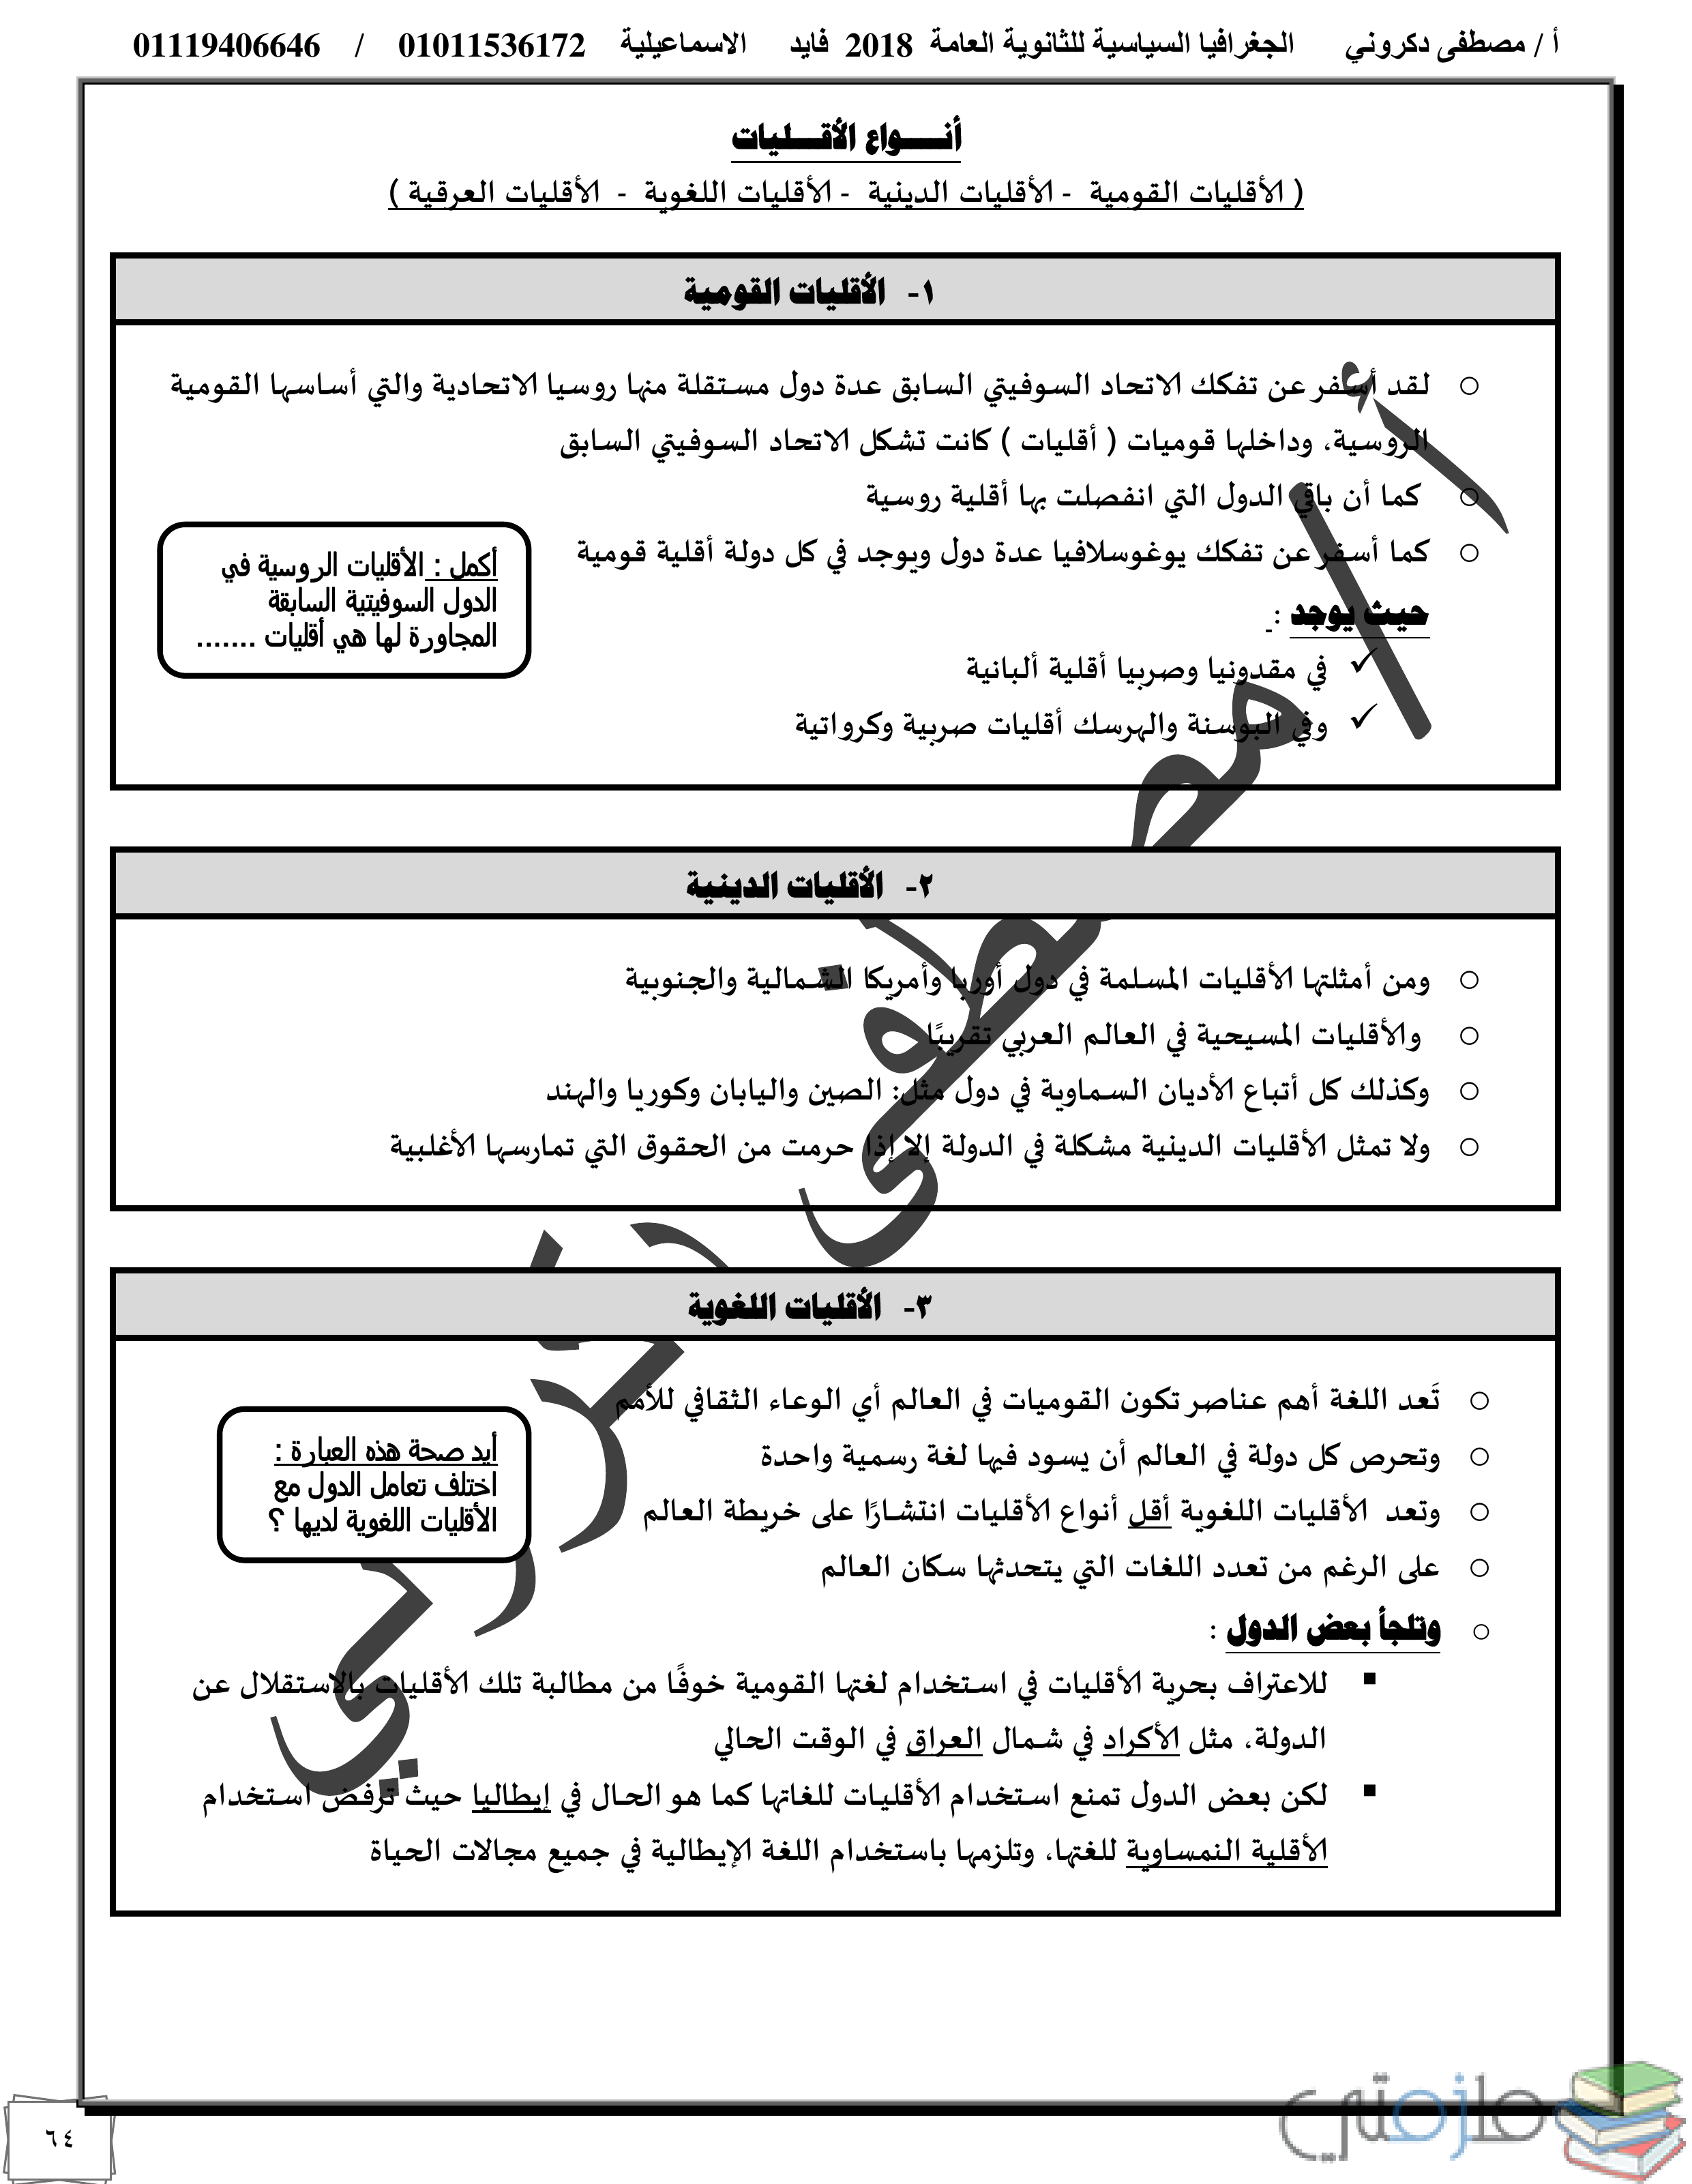 أ / مصطفى دكروني الجغرافيا السياسية للثانوية العامة 2018 فايد الاسماعيلية 01011536172 / 01119406646
أنـــــواع الأقـــــليات
( الأقليات القومية - الأقليات الدينية - الأقليات اللغوية - الأقليات العرقية )
١- الأقليات القومية
○ لقد أسفر عن تفكك الاتحاد السوفيتي السابق عدة دول مستقلة منها روسيا الاتحادية والتي أساسها القومية
الروسية، وداخلها قوميات ( أقليات ) كانت تشكل الاتحاد السوفيتي السابق
○ كما أن باقي الدول التي انفصلت بها أقلية روسية
○ كما أسفر عن تفكك يوغوسلافيا عدة دول ويوجد في كل دولة أقلية قومية
حيث يوجد :
✓ في مقدونيا وصربيا أقلية ألبانية
✓ وفي البوسنة والهرسك أقليات صربية وكرواتية
أكمل : الأقليات الروسية في
الدول السوفيتية السابقة
المجاورة لها هي أقليات .......
٢- الأقليات الدينية
○ ومن أمثلتها الأقليات المسلمة في دول أوربا وأمريكا الشمالية والجنوبية
○ والأقليات المسيحية في العالم العربي تقريبًا
○ وكذلك كل أتباع الأديان السماوية في دول مثل: الصين واليابان وكوريا والهند
○ ولا تمثل الأقليات الدينية مشكلة في الدولة إلا إذا حرمت من الحقوق التي تمارسها الأغلبية
٣- الأقليات اللغوية
○ تَعد اللغة أهم عناصر تكون القوميات في العالم أي الوعاء الثقافي للأمم
○ وتحرص كل دولة في العالم أن يسود فيها لغة رسمية واحدة
○ وتعد الأقليات اللغوية أقل أنواع الأقليات انتشارًا على خريطة العالم
○ على الرغم من تعدد اللغات التي يتحدثها سكان العالم
○ وتلجأ بعض الدول :
▪ للاعتراف بحرية الأقليات في استخدام لغتها القومية خوفًا من مطالبة تلك الأقليات بالاستقلال عن
الدولة، مثل الأكراد في شمال العراق في الوقت الحالي
▪ لكن بعض الدول تمنع استخدام الأقليات للغاتها كما هو الحال في إيطاليا حيث ترفض استخدام
الأقلية النمساوية للغتها، وتلزمها باستخدام اللغة الإيطالية في جميع مجالات الحياة
أيد صحة هذه العبارة :
اختلف تعامل الدول مع
الأقليات اللغوية لديها ؟
أ / مصطفى دكروني
٦٤
ملزمتي